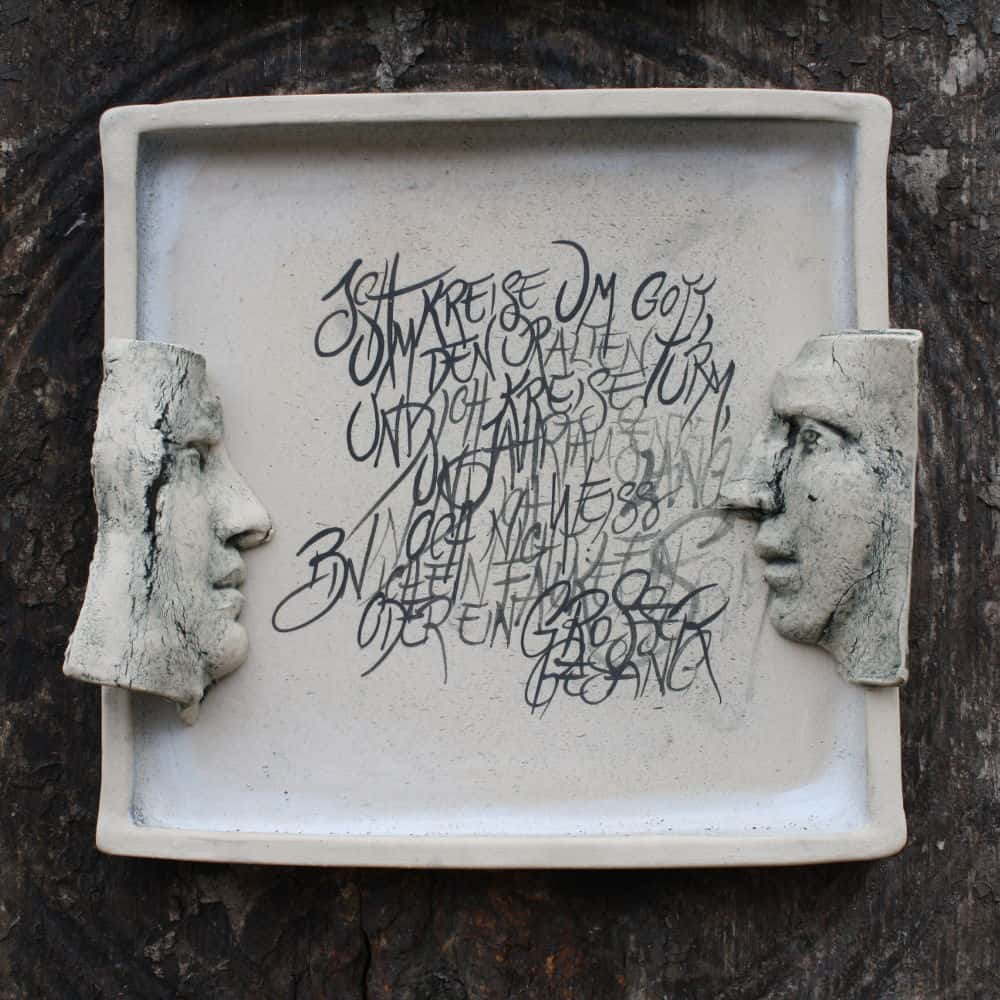 ICH KREISE UM GOTT,
UM DEN URALTEN TURM,
UND ICH KREISE
JAHRTAUSENDELANG
UND ICH WEISS
NOCH NICHT:
BIN ICH EIN FALKE EIN
ODER EIN GROSSER
GESANG